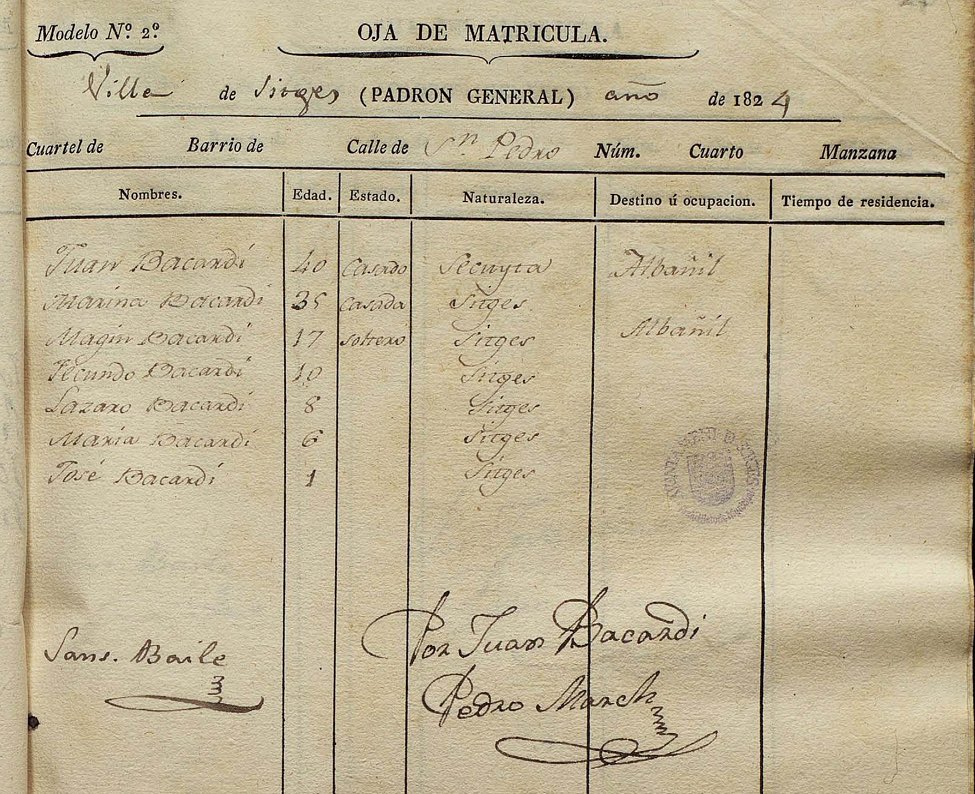 Modelo Nº. 2º. OJA DE MATRICULA.
Villa de Sitges (PADRON GENERAL) año de 1824
Cuartel de Barrio de Calle de Sn. Pedro Núm. Cuarto Manzana
Nombres. Edad. Estado. Naturaleza. Destino ú ocupacion. Tiempo de residencia.
Juan Bacardi 40 Casado Secuyta Albañil
Marina Bacardi 35 Casada Sitges
Magin Bacardi 17 Soltero Sitges Albañil
Fecundo Bacardi 10 Sitges
Lazaro Bacardi 8 Sitges
Maria Bacardi 6 Sitges
José Bacardi 1 Sitges
Por Juan Bacardi
Sans. Baile
Pedro March